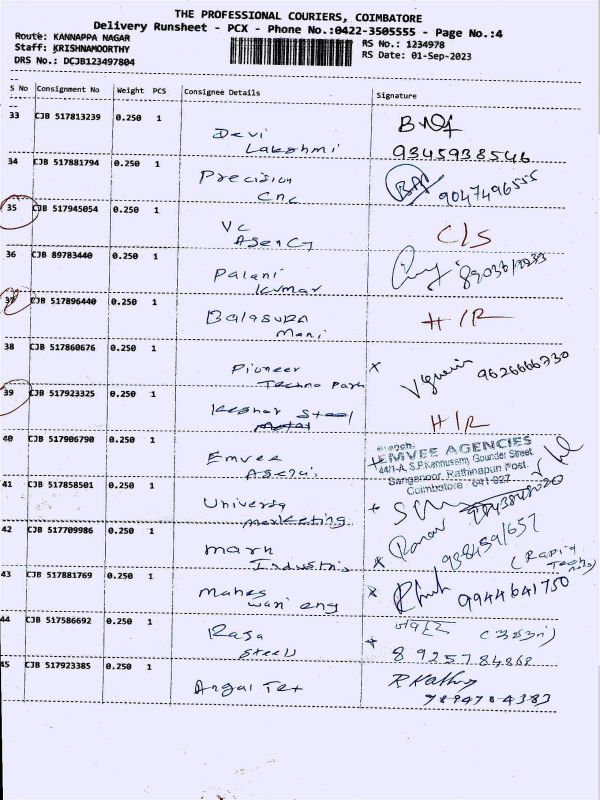 THE PROFESSIONAL COURIERS, COIMBATORE
Delivery Runsheet - PCX - Phone No.:0422-3505555 - Page No.:4
Route: KANNAPPA NAGAR
Staff: KRISHNAMOORTHY
DRS No.: DCJB123497804
RS No.: 1234978
RS Date: 01-Sep-2023
S No Consignment No Weight PCS Consignee Details Signature
33 CJB 517813239 0.250 1
Devi
Lakshmi 9345938546
34 CJB 517881794 0.250 1
Precision
Cnc 9047496555
35 CJB 517945054 0.250 1
Vc
Agency C/S
36 CJB 89783440 0.250 1
Palani
Kumar
37 CJB 517896440 0.250 1
Balasubra
Mani H/R
38 CJB 517860676 0.250 1
Pioneer x
Techno Park 9626666730
39 CJB 517923325 0.250 1
Keshar Steel H/R
40 CJB 517906790 0.250 1
Emvee
EMVEE AGENCIES
44/1-A, S.P. Kannusamy Gounder Street,
Sanganoor, Rathinapuri Post,
Coimbatore - 641 027
41 CJB 517858501 0.250 1
Universa
marketing
42 CJB 517709986 0.250 1
Mark
43 CJB 517881769 0.250 1
Mahes x
wari eng 9944641750
44 CJB 517586692 0.250 1
Raja
Steels 8925784868
45 CJB 517923385 0.250 1
Angai Tex 7894784383